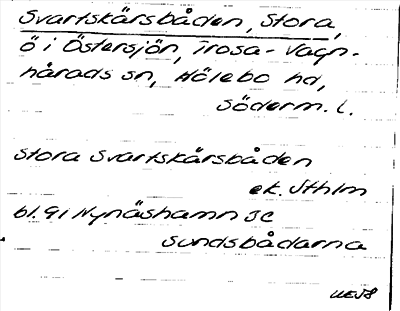 Svartskärsbåden, Stora,
ö i Östersjön, Trosa-Vagn-
hårads sn, Hölebo hd,
Söderm. l.
Stora Svartskärsbåden
ek. Sthlm
bl. 91 Nynäshamn SC
Sundsbådarna